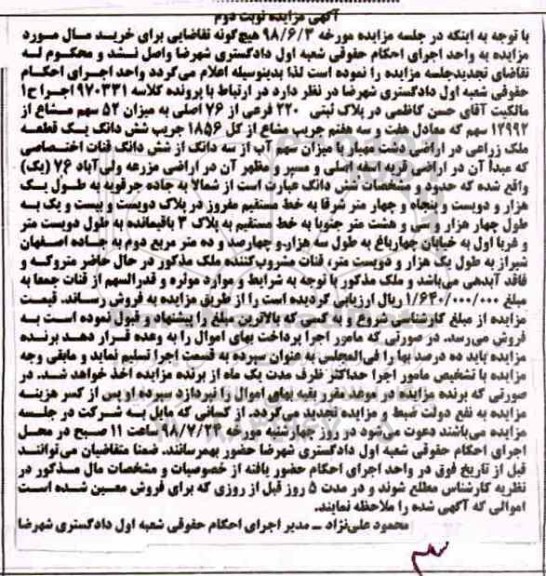 آگهی مزایده نوبت دوم
با توجه به اینکه در جلسه مزایده مورخه ۹۸/۶/۳ هیچ‌گونه تقاضایی برای خرید مال مورد
مزایده به واحد اجرای احکام حقوقی شعبه اول دادگستری شهرضا واصل نشد و محکوم له
تقاضای تجدیدجلسه مزایده را نموده است لذا بدینوسیله اعلام می‌گردد واحد اجرای احکام
حقوقی شعبه اول دادگستری شهرضا در نظر دارد در ارتباط با پرونده کلاسه ۹۷۰۳۳۱ اجرا ح۱
مالکیت آقای حسن کاظمی در پلاک ثبتی ۲۲۰ فرعی از ۷۶ اصلی به میزان ۵۲ سهم مشاع از
۱۲۹۹۲ سهم که معادل هفت و سه هفتم جریب مشاع از کل ۱۸۵۶ جریب شش دانگ یک قطعه
ملک زراعی در اراضی دشت مهیار با میزان سهم آب از سه دانگ از شش دانگ قنات اختصاصی
که مبدأ آن در اراضی قریه اسفه اصلی و مسیر و مظهر آن در اراضی مزرعه ولی‌آباد ۷۶ (یک)
واقع شده که حدود و مشخصات شش دانگ عبارت است از شمالا به جاده جرقویه به طول یک
هزار و دویست و پنجاه و چهار متر شرقا به خط مستقیم مفروز در پلاک دویست و بیست و یک به
طول چهار هزار و سی و هشت متر جنوبا به خط مستقیم به پلاک ۳ باقیمانده به طول دویست متر
و غربا اول به خیابان چهارباغ به طول سه هزار و چهارصد و ده متر مربع دوم به جاده اصفهان
شیراز به طول یک هزار و دویست متر، قنات مشروب‌کننده ملک مذکور در حال حاضر متروکه و
فاقد آبدهی می‌باشد و ملک مذکور با توجه به شرایط و موارد موثره و قدرالسهم از قنات جمعا به
مبلغ ۱/۶۴۰/۰۰۰/۰۰۰ ریال ارزیابی گردیده است را از طریق مزایده به فروش رساند. قیمت
مزایده از مبلغ کارشناسی شروع و به کسی که بالاترین مبلغ را پیشنهاد و قبول نموده است به
فروش می‌رسد. در صورتی که مامور اجرا پرداخت بهای اموال را به وعده قرار دهد برنده
مزایده باید ده درصد بها را فی‌المجلس به عنوان سپرده به قسمت اجرا تسلیم نماید و مابقی وجه
مزایده با تشخیص مامور اجرا حداکثر ظرف مدت یک ماه از برنده مزایده اخذ خواهد شد. در
صورتی که برنده مزایده در موعد مقرر بقیه بهای اموال را نپردازد سپرده او پس از کسر هزینه
مزایده به نفع دولت ضبط و مزایده تجدید می‌گردد. از کسانی که مایل به شرکت در جلسه
مزایده می‌باشند دعوت می‌شود در روز چهارشنبه مورخه ساعت ۱۱ صبح در محل
اجرای احکام حقوقی شعبه اول دادگستری شهرضا حضور بهمرسانند. ضمنا متقاضیان می‌توانند
قبل از تاریخ فوق در واحد اجرای احکام حضور یافته از خصوصیات و مشخصات مال مذکور در
نظریه کارشناس مطلع شوند و در مدت ۵ روز قبل از روزی که برای فروش معین شده است
اموالی که آگهی شده را ملاحظه نمایند.
محمود علی‌نژاد ــ مدیر اجرای احکام حقوقی شعبه اول دادگستری شهرضا